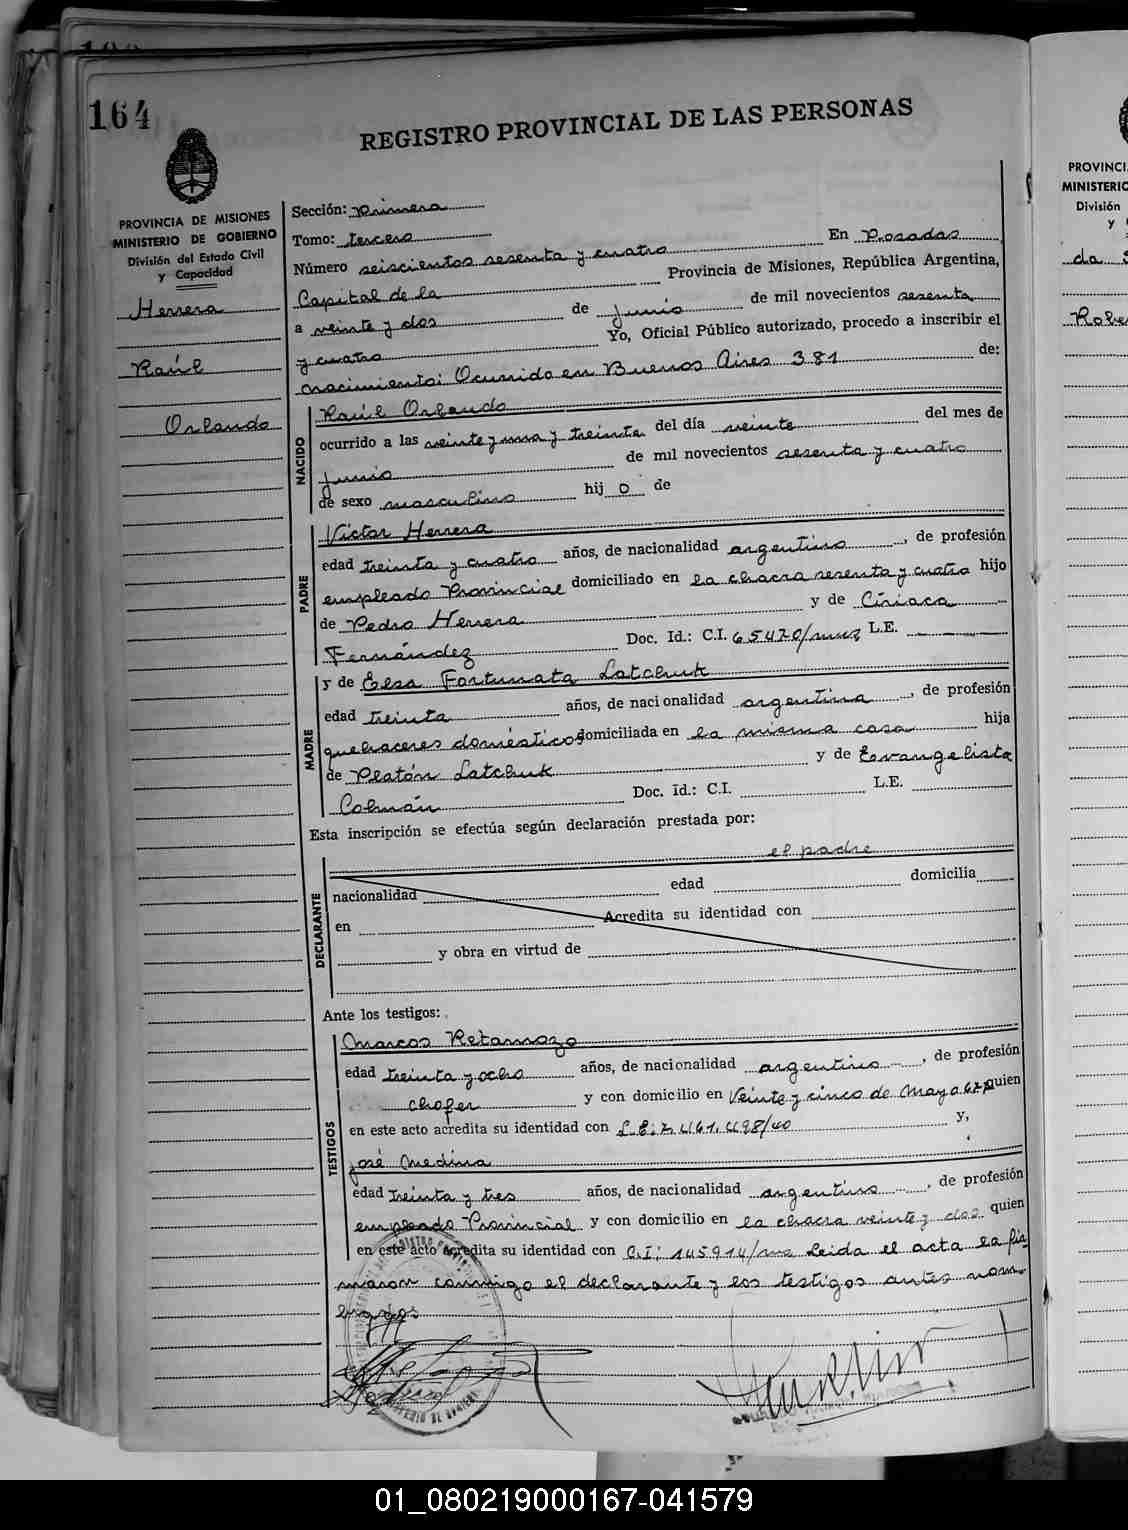 164
REGISTRO PROVINCIAL DE LAS PERSONAS
PROVINCIA DE MISIONES
MINISTERIO DE GOBIERNO
División del Estado Civil
y Capacidad
Herrera
Raúl
Orlando
Sección: Primera
Tomo: tercero
Número seiscientos sesenta y cuatro En Posadas
Capital de la Provincia de Misiones, República Argentina,
a veinte y dos de junio de mil novecientos sesenta
y cuatro Yo, Oficial Público autorizado, procedo a inscribir el
nacimiento: Ocurrido en Buenos Aires 381 de:
NACIDO
Raúl Orlando
ocurrido a las veinte y una y treinta del día veinte del mes de
junio de mil novecientos sesenta y cuatro
de sexo masculino hij o de
PADRE
Víctor Herrera
edad treinta y cuatro años, de nacionalidad argentino, de profesión
empleado Provincial domiciliado en la chacra sesenta y cuatro hijo
de Pedro Herrera y de Ciriaca
Fernández Doc. Id.: C.I. 65420/mnes L.E.
MADRE
y de Elsa Fortunata Latchuk
edad treinta años, de nacionalidad argentina, de profesión
quehaceres domésticos domiciliada en la misma casa hija
de Platón Latchuk y de Evangelista
Colmán Doc. Id.: C.I. L.E.
Esta inscripción se efectúa según declaración prestada por:
el padre
DECLARANTE
nacionalidad edad domicilia
en Acredita su identidad con
y obra en virtud de
Ante los testigos:
TESTIGOS
Marcos Retamozo
edad treinta y ocho años, de nacionalidad argentino, de profesión
chofer y con domicilio en Veinte y cinco de Mayo quien
en este acto acredita su identidad con y,
José Medina
edad treinta y tres años, de nacionalidad argentino, de profesión
empleado Provincial y con domicilio en la chacra veinte y dos quien
en este acto acredita su identidad con C.I: 145914/ Leida el acta la fir
maron conmigo el declarante y los testigos antes nom-
brados
PROVINCI
MINISTERIO
División
y
da
Robe
01_080219000167-041579